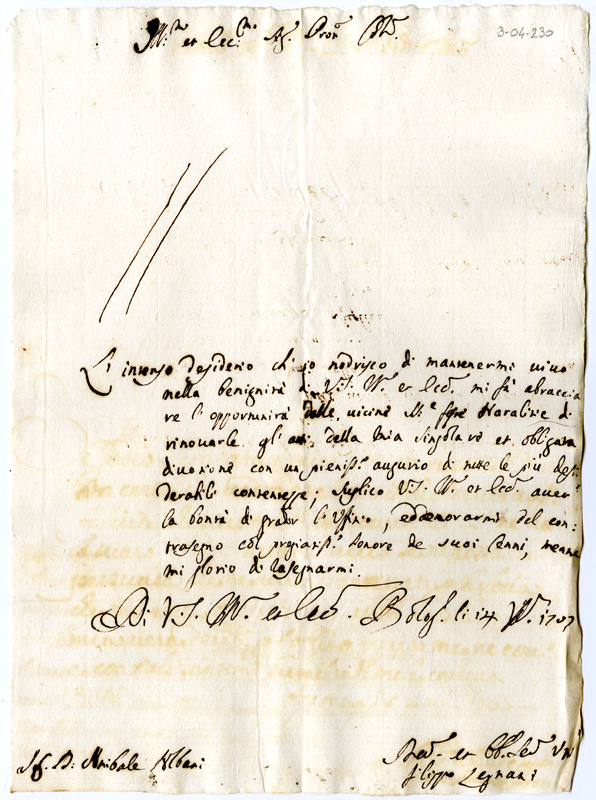 Ill.mo et Ecc.mo Sig. Pron Col.
3-04-230
L'intenso desiderio ch'io nodrisco di mantenermi vivo
nella benignità di V.S. Ill. et Ecc. mi fà abraccia
re l'opportunità delle vicine S.te feste Natalitie di
rinovarle gl'atti della mia singolare et obligata
divotione con un pieniss.o augurio di tutte le più desi
derabili contentezze; suplico V.S. Ill. et Ecc. aver
la bontà di gradir l'Uffitio, ed onorarmi del con:
trasegno col pregiatiss.o honore de suoi Cenni, mentre
mi glorio di rasegnarmi.
Di V.S. Ill. et Ecc. Bolog. li 14 1707
Sig. D. Anibale Albani
Dev. et Obl. Ser.
Filippo Legnani